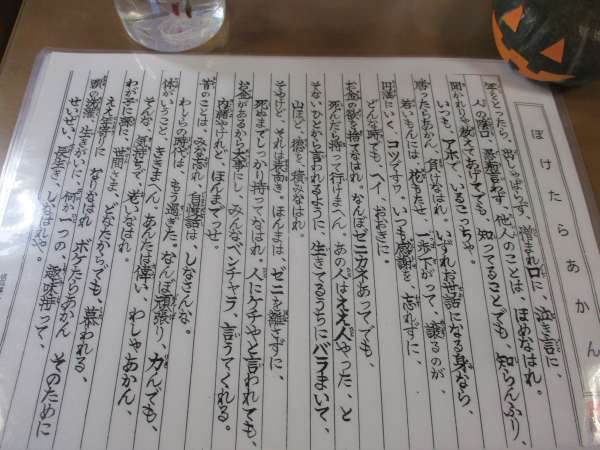 ぼけたらあかん
年をとったら、出しゃばらず、憎まれ口に、泣き言に、
人の陰口、悪態言わず、他人のことは、ほめなはれ。
聞かれりゃ教えてあげてても、知ってることでも、知らんふり、
いつも、アホで、いるこっちゃ。
勝ったらあかん、負けなはれ、いずれお世話になる身なら、
若いもんには、花もたせ、一歩下がって、譲るのが、
円満にいく、コツですワ。いつも感謝を、忘れずに、
どんな時でも、ヘイ、おおきに。
お金の欲を、捨てなはれ。なんぼゼニカネあってでも、
死んだら持って行けまへん。あの人はええ人やった、と
そないひとから言われるように、生きてるうちにバラまいて、
山ほど、徳を、積みなはれ。
そやけど、それは表向き。ほんまは、ゼニを離さずに、
死ぬまでしっかり持ってなはれ。人にケチやと言われても、
お金があるから大事にし、みんなベンチャラ、言うてくれる。
内緒やけれど、ほんまでっせ。
昔のことは、みな忘れ、自慢話は、しなさんな。
わしらの時代は、もう過ぎた。なんぼ頑張り、力んでも、
体がいうこと、ききまへん。あんたは偉い、わしゃあかん、
そんな、気持ちで、老いなはれ。
わが子に孫に、世間さま、どなたからでも、慕われる、
ええ年寄りに、なりなはれ。ボケたらあかん そのために
頭の洗濯、生きがいに、何か一つの、趣味持って、
せいぜい、長生き、しなはれや。